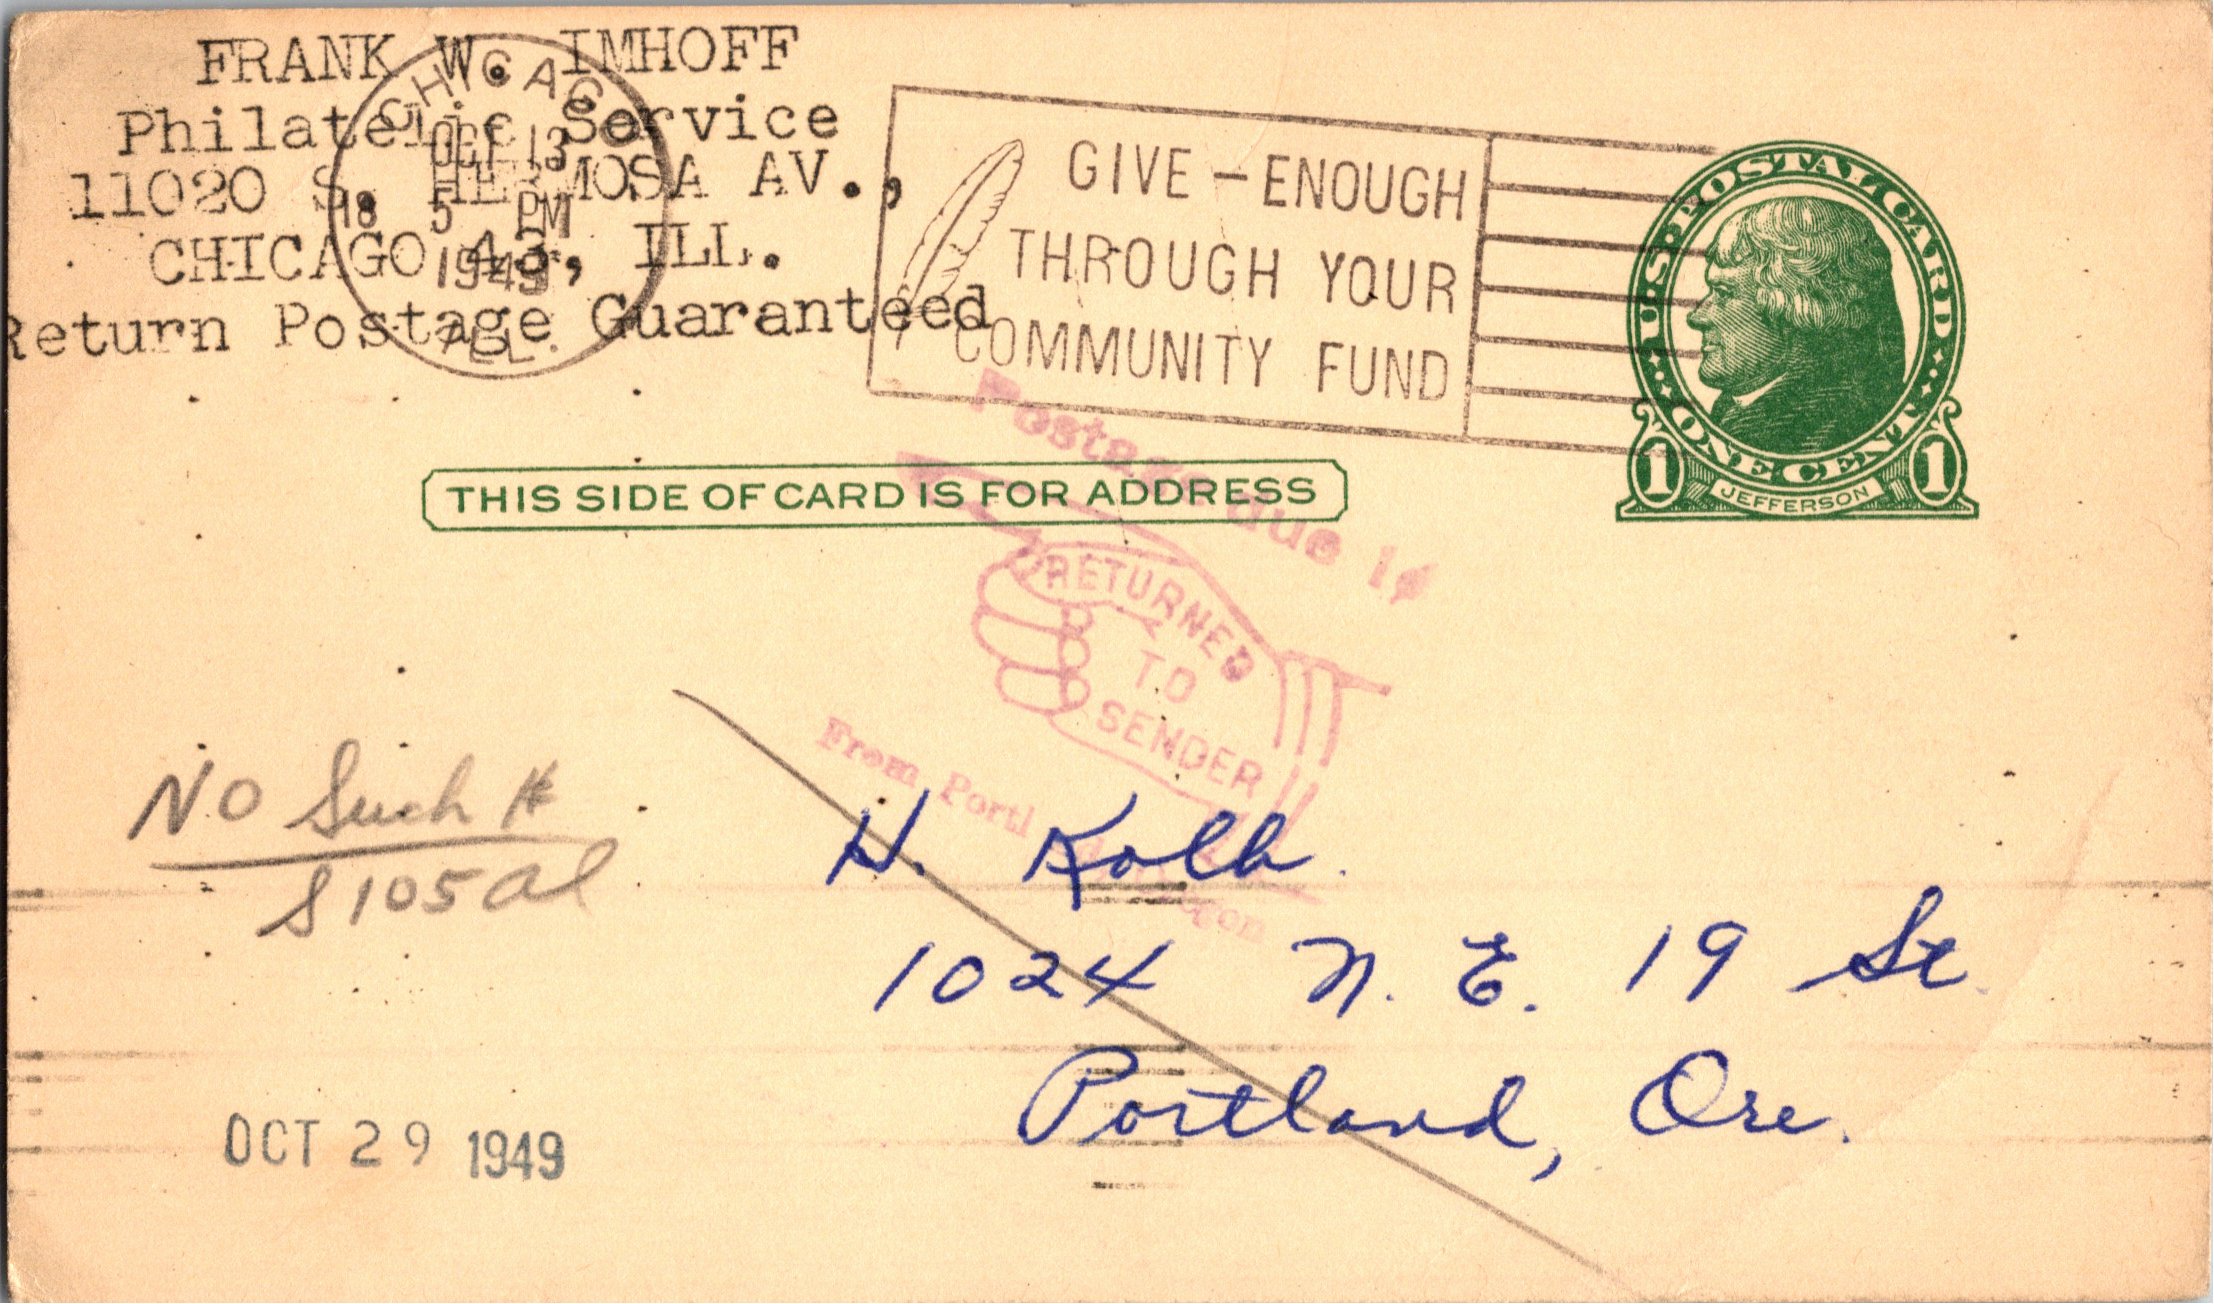 FRANK W. IMHOFF
Philatelic Service
11020 S. HERMOSA AV.,
CHICAGO 43, ILL.
Return Postage Guaranteed
CHICAGO
OCT 13
18 5 PM
1949
ILL.
GIVE - ENOUGH
THROUGH YOUR
COMMUNITY FUND
U.S. POSTAL CARD
ONE CENT
1 JEFFERSON 1
THIS SIDE OF CARD IS FOR ADDRESS
Postage due 1¢
RETURNED
TO
SENDER
From Portl
No Such #
S 105 al
H. Kolb
1024 N. E. 19 St.
Portland, Ore.
OCT 29 1949